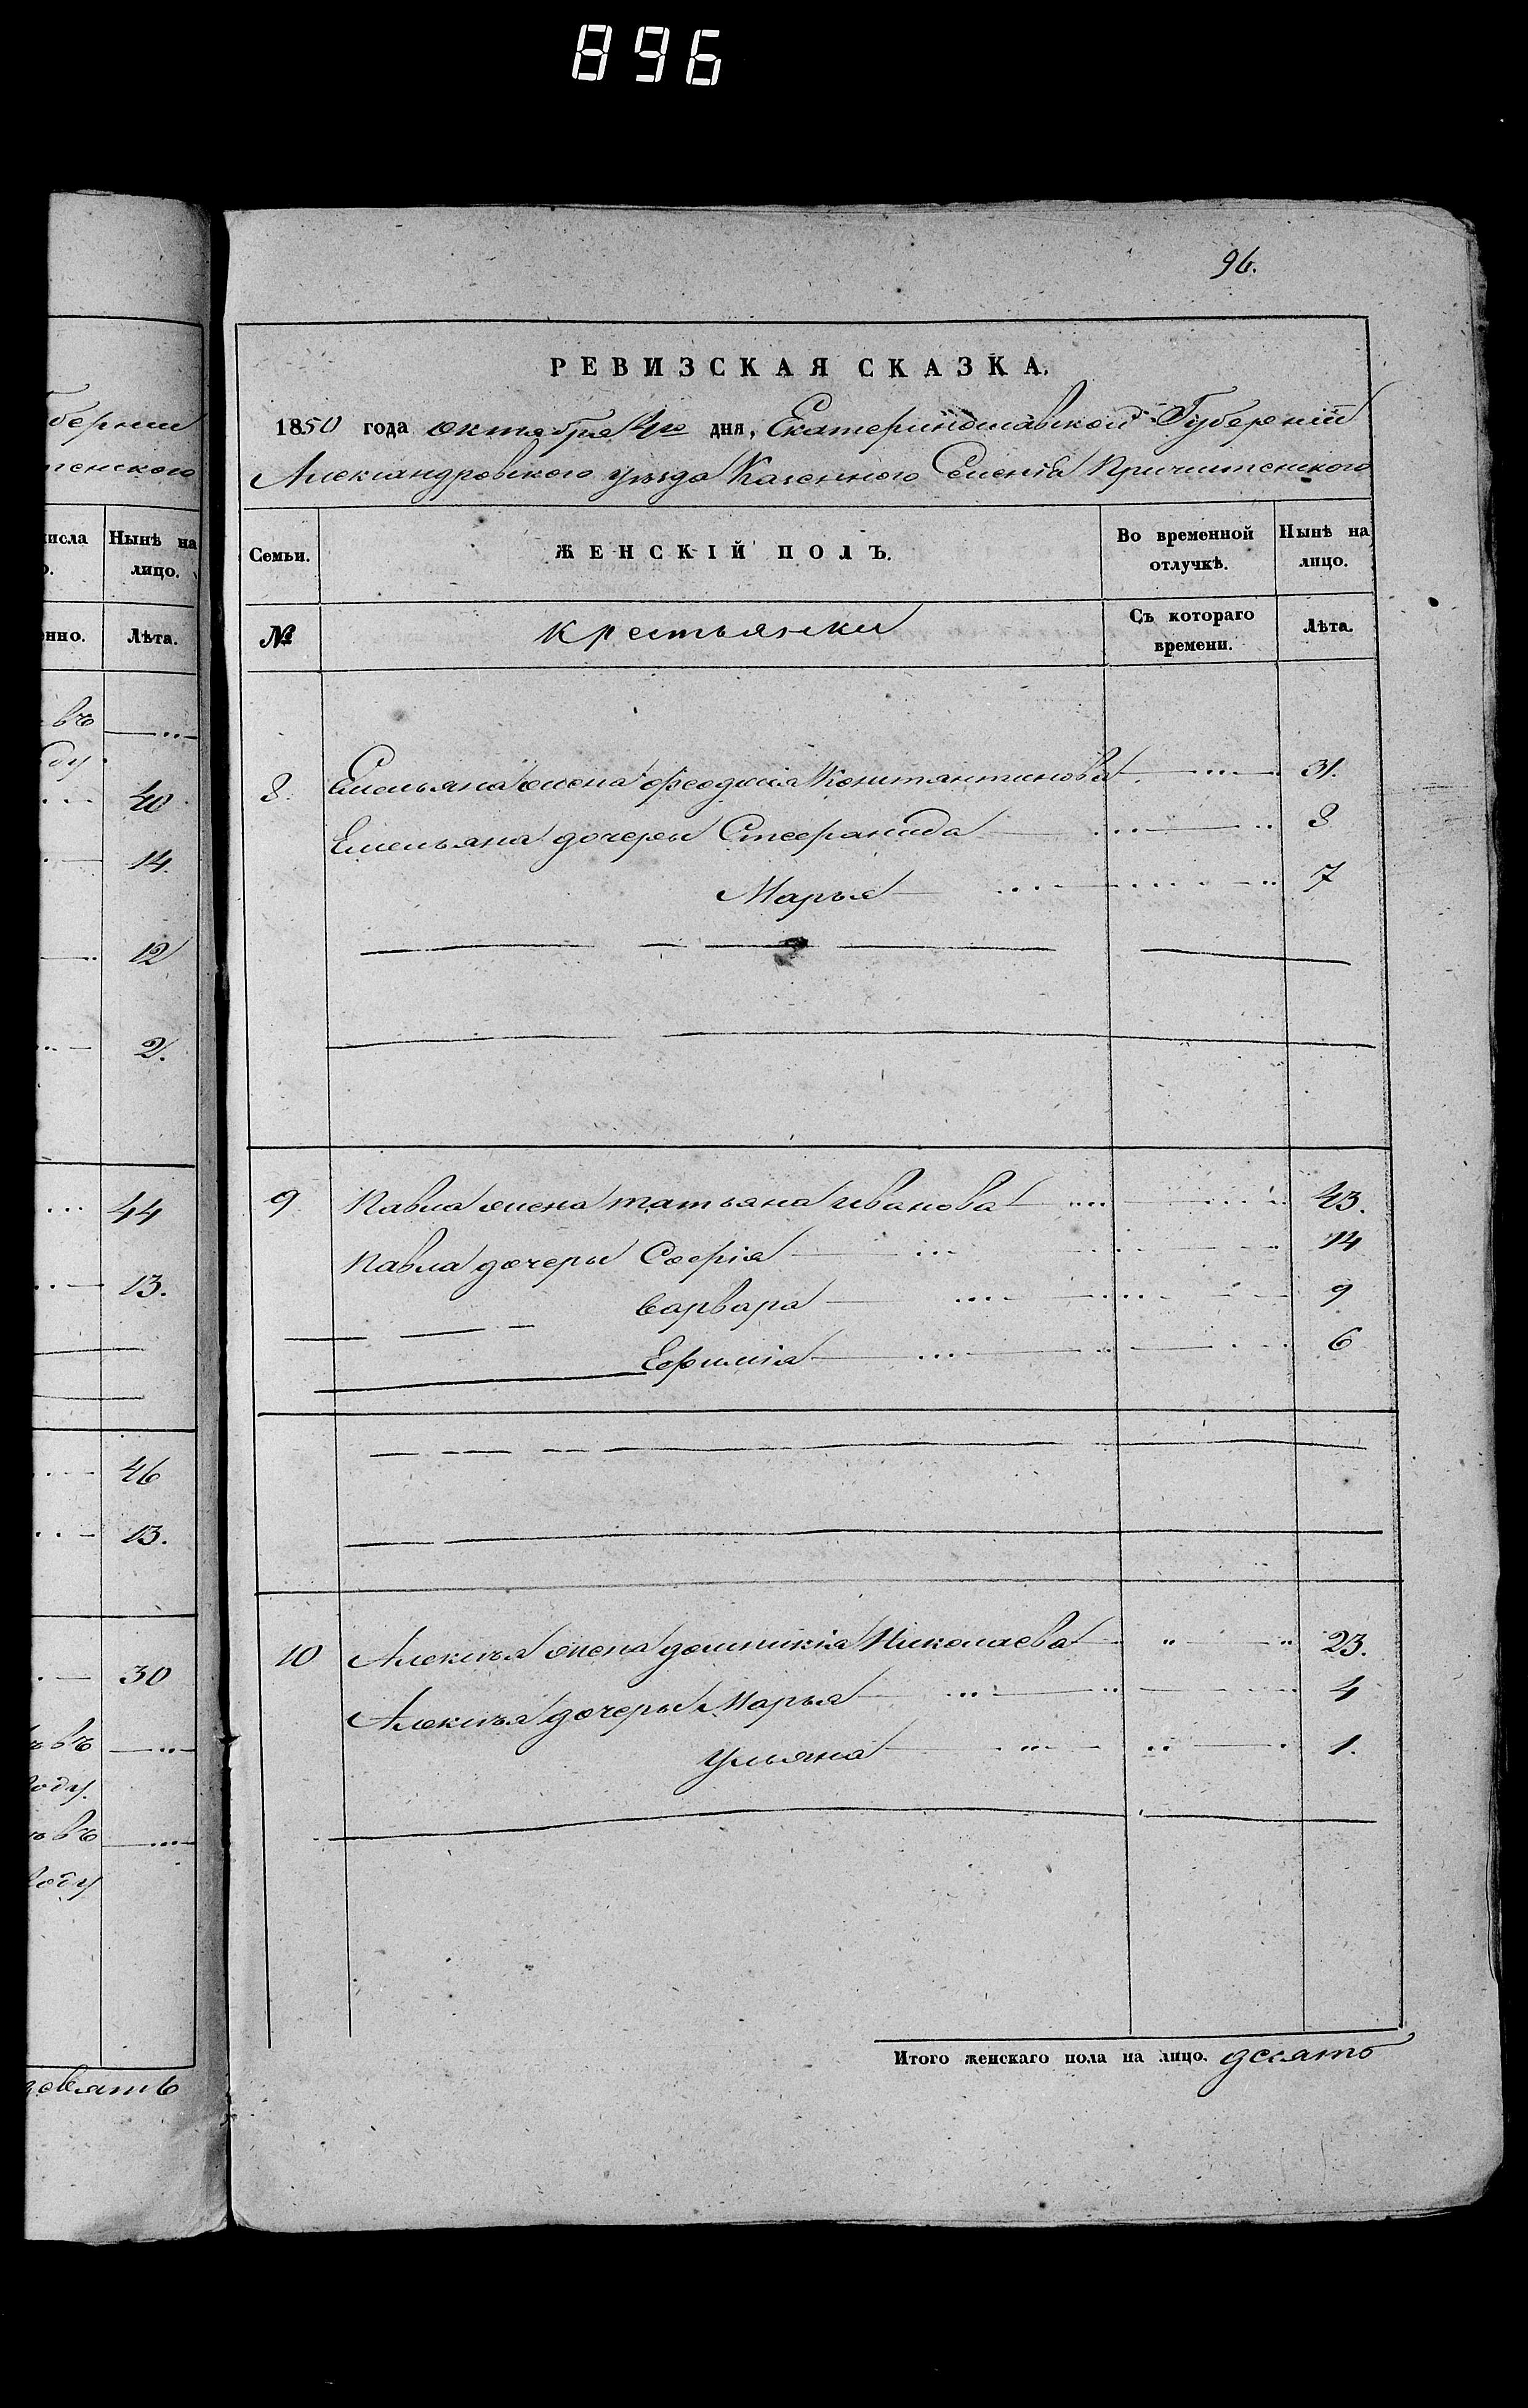 896
96.
РЕВИЗСКАЯ СКАЗКА.
1850 года октября 4го дня, Екатеринославской Губерніи
Александровского уезда Казенного Селенія Пречистенского
Семьи. ЖЕНСКІЙ ПОЛЪ. Во временной отлучкѣ. Нынѣ на лицо.
№ Крестьянки Съ котораго времени. Лѣта.
8. Емельяна жена Феодосія Константинова 31.
Емельяна дочери Стефанида 8
Марья 7
9 Павла жена татьяна иванова 43.
Павла дочери Софія 14
варвара 9
Ефимія 6
10 Алексѣя жена домникія Николаева 23.
Алексѣя дочери Марья 4
ульяна 1.
Итого женскаго пола на лицо. десять
берніи
тенского
числа Нынѣ на
лицо.
Лѣта.
въ
40
14.
12
2.
44
13.
46
13.
30
въ
году.
въ
году
девять